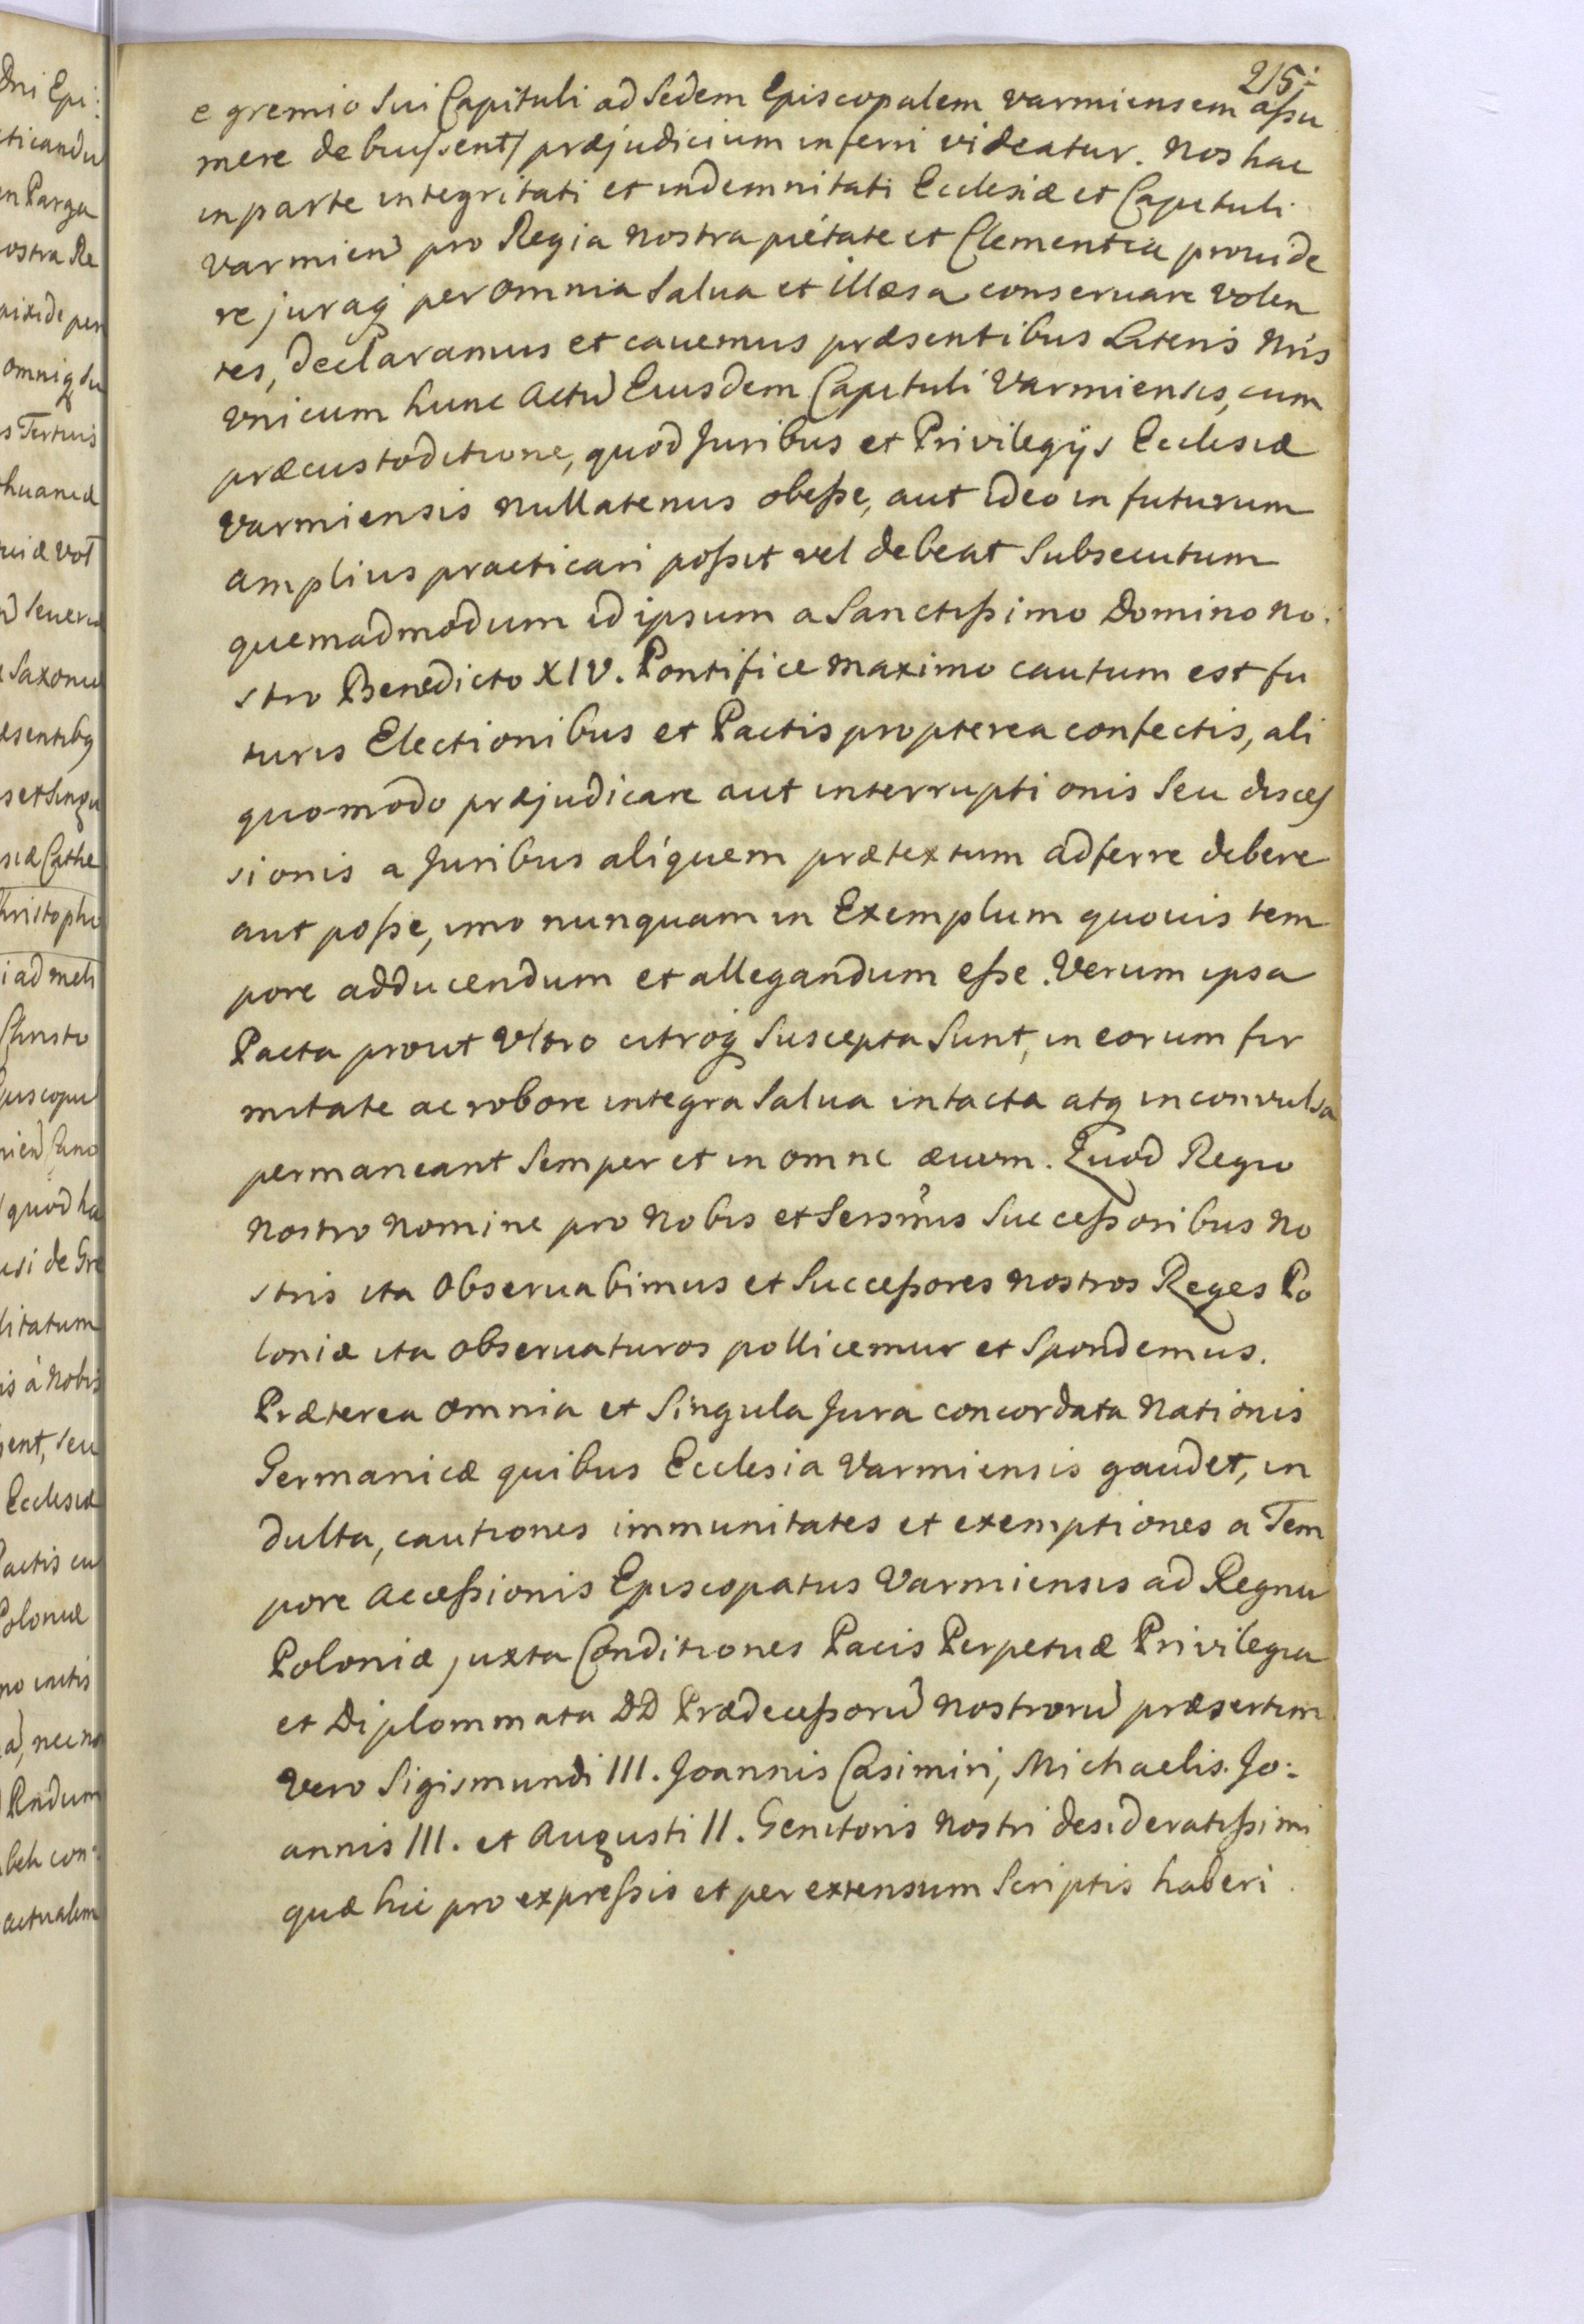 215:
e gremio Sui Capituli ad Sedem Episcopalem varmiensem aßu
mere debuißent/ præjudicium inferri videatur. Nos hac
in parte integritati et indemnitati Ecclesiæ et Capituli
varmien pro Regia nostra pietate et Clementia prouide
re juraq per omnia Salua et illæsa conseruare volen
tes, declaramus et cauemus præsentibus Literis Nris
vnicum hunc Actu Eiusdem Capituli Varmiensis, cum
præcustoditione, quod Juribus et Privilegijs Ecclesiæ
varmiensis nullatenus obeße, aut ideo in futurum
amplius practicari poßit vel debeat Subsecutum
quemadmodum id ipsum a Sanctißimo Domino no:
stro Benedicto XIV. Pontifice Maximo cautum est fu
turis Electionibus et Pactis propterea confectis, ali
quomodo præjudicare aut interruptionis Seu disces
sionis a Juribus aliquem prætextum adferre debere
aut poße, imo nunquam in Exemplum quouis tem
pore adducendum et allegandum eße. Verum ipsa
Pacta prout Vltro citroq Suscepta Sunt, in eorum fir
mitate ac robore integra Salua intacta atq inconvulsa
permaneant Semper et in omne æuum. Quod Regio
Nostro Nomine pro Nobis et Sersmis Succeßoribus No
stris ita Observabimus et Succeßores nostros Reges Po
loniæ ita observaturos pollicemur et Spondemus.
Præterea omnia et Singula Jura concordata Nationis
Germanicæ quibus Ecclesia Varmiensis gaudet, in
dulta, cautiones immunitates et exemptiones a Tem
pore Acceßionis Episcopatus Varmiensis ad Regnu
Poloniæ juxta Conditiones Pacis Perpetuæ Privilegia
et Diplommata DD Prædeceßoru nostroru præsertim
vero Sigismundi III. Joannis Casimiri, Michaelis. Jo:
annis III. et Augusti II. Genitoris nostri desideratißimi
quæ hic pro expreßis et per extensum Scriptis haberi